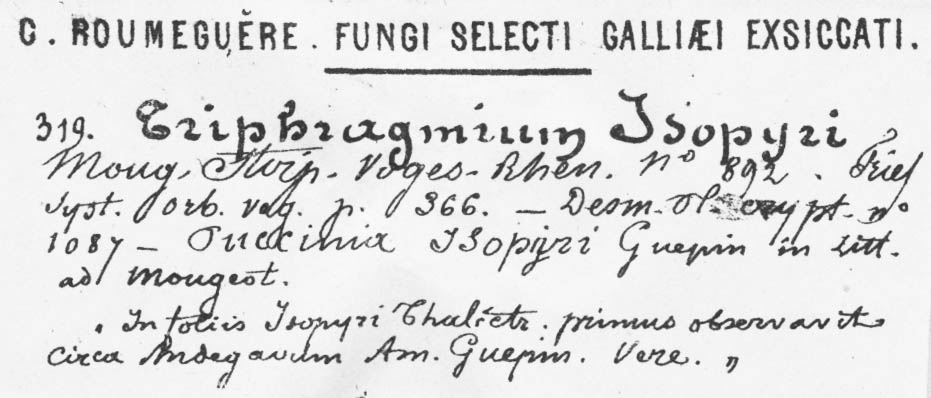 C. ROUMEGUĚRE. FUNGI SELECTI GALLIÆI EXSICCATI.
319. Triphragmium Isopyri
Moug. Stirp. Voges-Rhen. no 892. Fries
Syst. orb. veg. p. 366. – Desm. Pl. crypt. no
1087 – Puccinia Isopyri Guepin in litt.
ad Mougeot.
" In foliis Isopyri Thalictr. primus observavit
circa Andegavum Am. Guepin. Vere. "